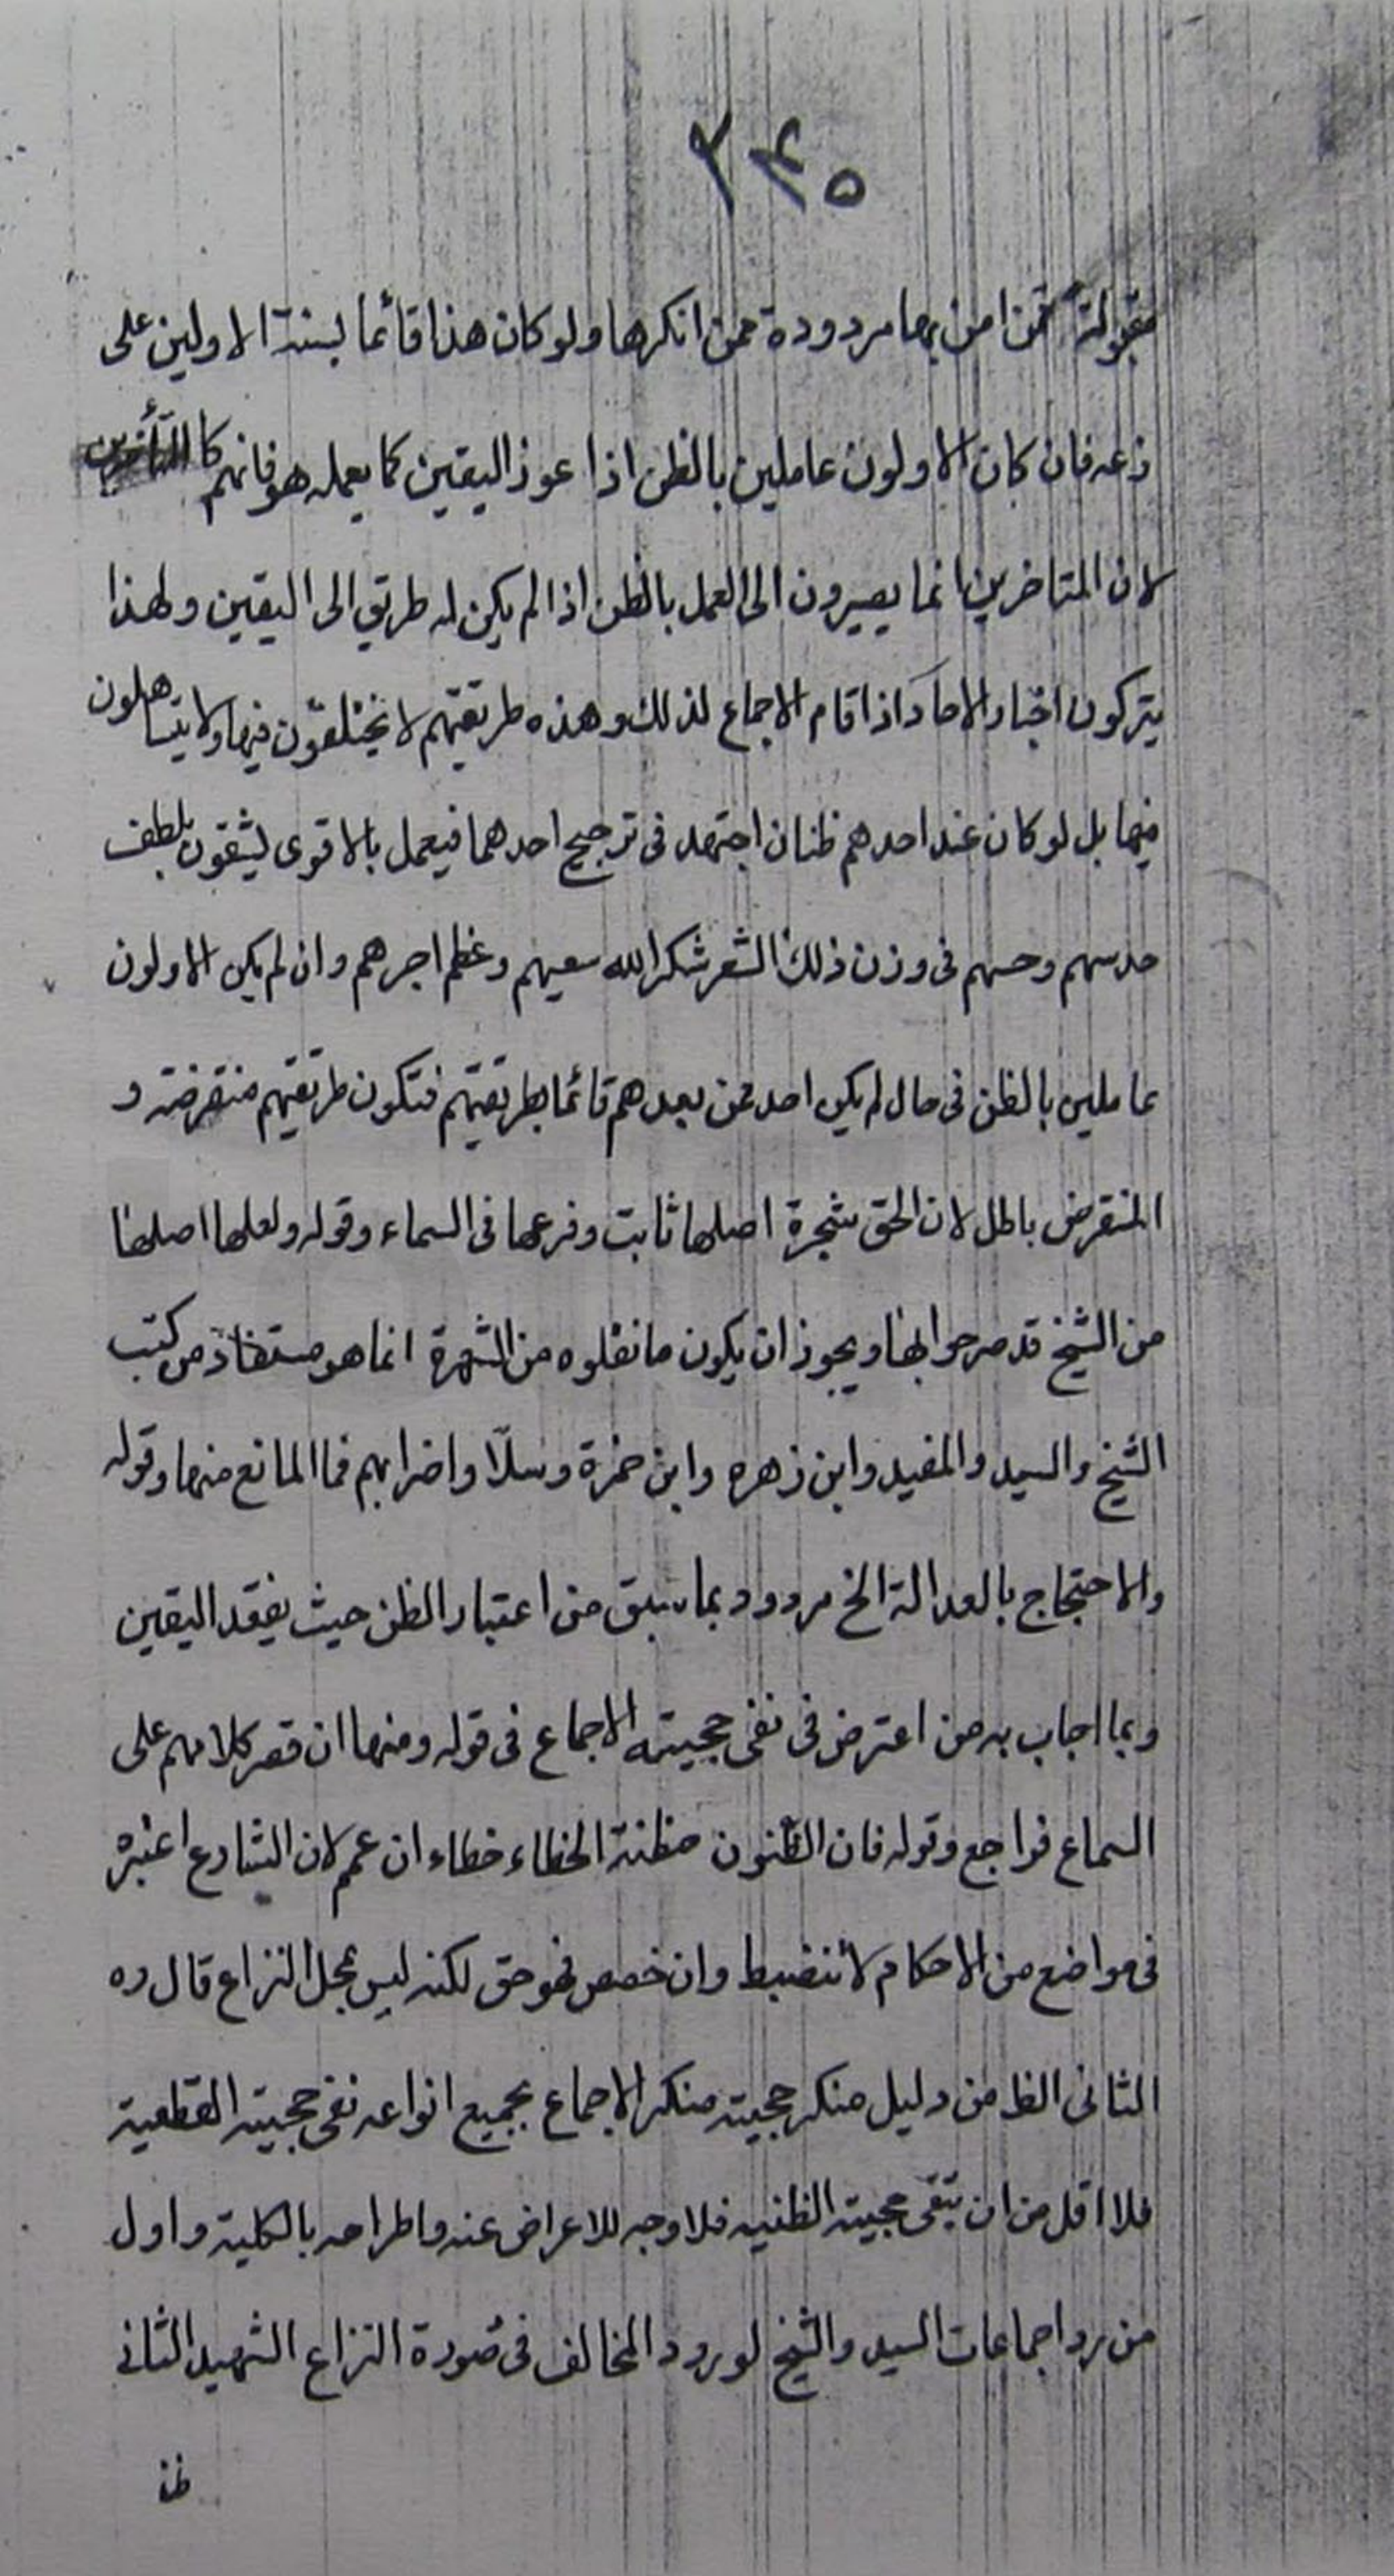 ٣٤٥
مقبولة ممن امن بها مردودة ممن انكرها ولو كان هذا قائما بسنة الاولين على
زعمه فان كان الاولون عاملين بالظن اذا عوز اليقين كما يعمله هو فانهم كالمتأخرين
لان المتاخرين انما يصيرون الى العمل بالظن اذا لم يكن له طريق الى اليقين ولهذا
يتركون اخبار الاحاد اذا قام الاجماع لذلك وهذه طريقتهم لا يختلفون فيها ولا يتساهلون
فيها بل لو كان عند احدهم ظنان اجتهد فى ترجيح احدهما فيعمل بالاقوى بلطف
حدسهم وحسهم فى وزن ذلك الشعر شكر الله سعيهم وعظم اجرهم وان لم يكن الاولون
عاملين بالظن فى حال لم يكن احد ممن بعدهم قائما بطريقتهم فتكون طريقتهم منقرضة و
المنقرض باطل لان الحق شجرة اصلها ثابت وفرعها فى السماء وقوله ولعلها اصلها
من الشيخ قد صرحوا بها ويجوز ان يكون ما نقلوه من الشهرة انما هو مستفاد من كتب
الشيخ والسيد والمفيد وابن زهره وابن حمزة وسلّا واضرابهم فما المانع منها وقوله
والاحتجاج بالعدالة الخ مردود بما سبق من اعتبار الظن حيث يفقد اليقين
وبما اجاب به من اعترض فى نفى حجيته الاجماع فى قوله ومنها ان قصر كلامهم على
السماع فراجع وقوله فان الظنون مظنة الخطاء خطاء ان عمم لان الشارع اعتبره
فى مواضع من الاحكام لا تنضبط وان خصص فهو حق لكنه ليس بمحل النزاع قال ره
الثانى الظ من دليل منكر حجيته منكر الاجماع بجميع انواعه نفى حجيته القطعية
فلا اقل من ان تبقى حجيته الظنيه فلا وجه للاعراض عنه واطراحه بالكلية واول
من رد اجماعات السيد والشيخ لورود المخالف فى صورة النزاع الشهيد الثانى